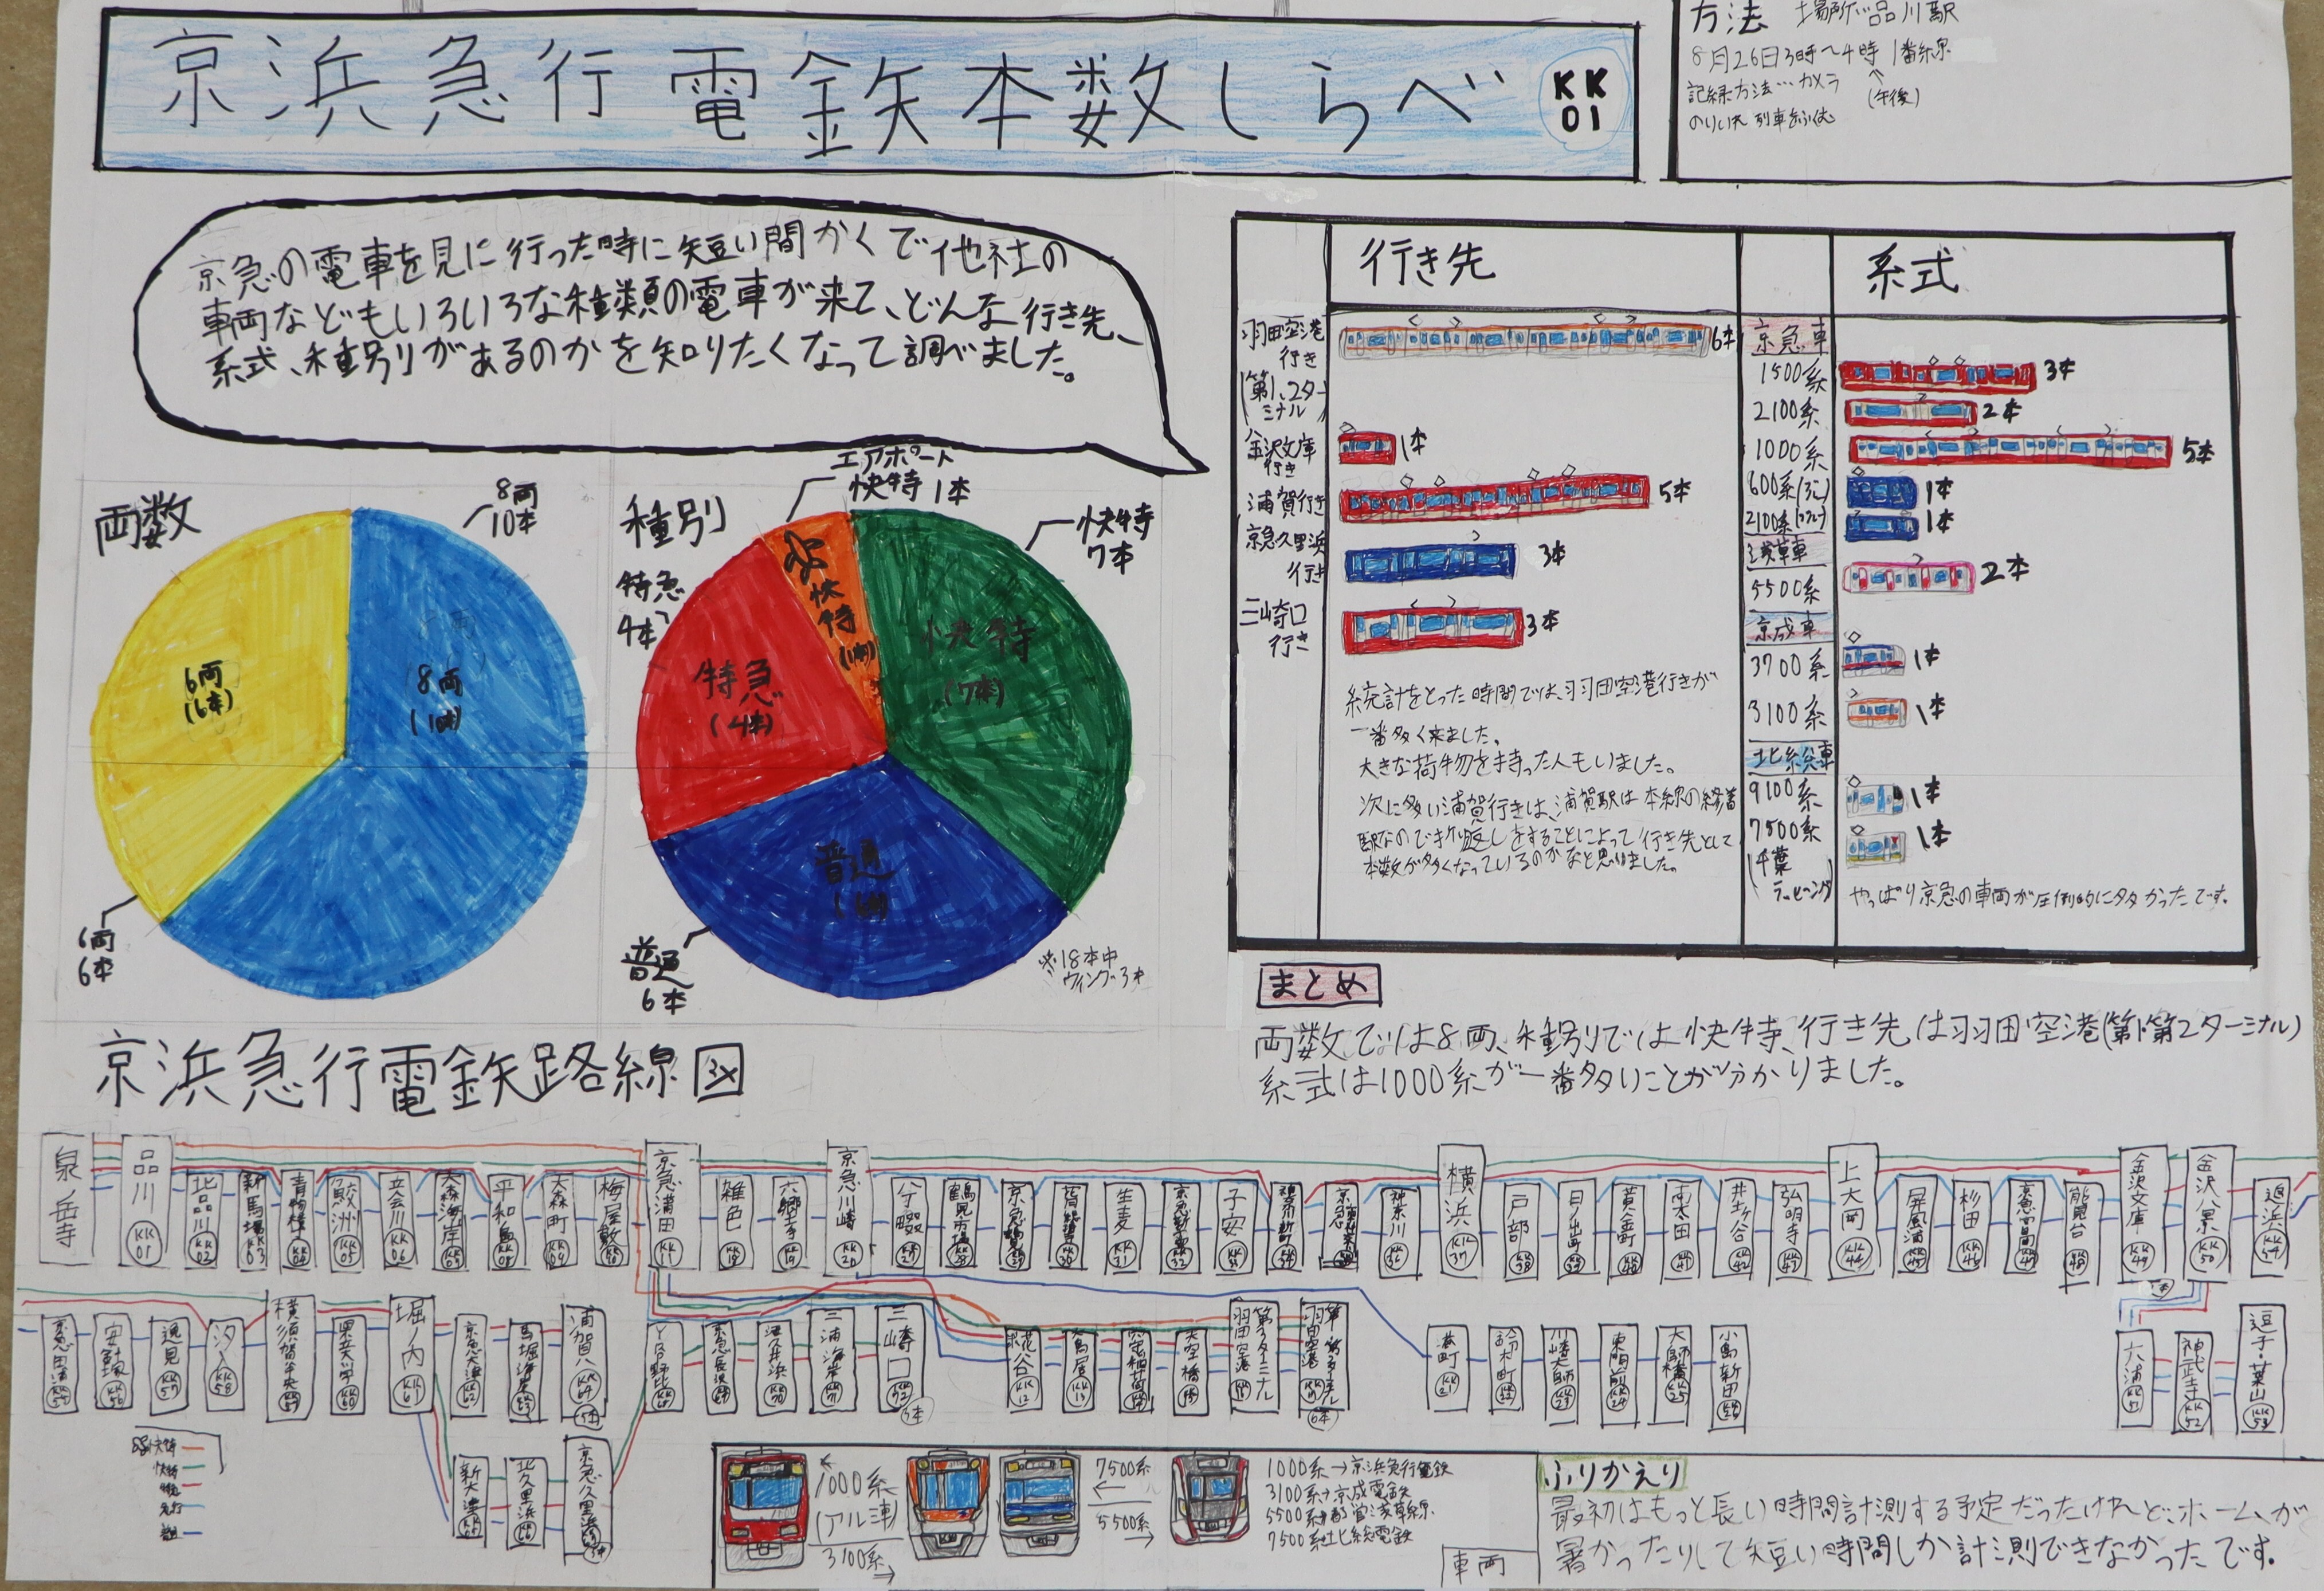 京浜急行電鉄本数しらべ
KK
01
方法 場所…品川駅
8月26日3時~4時 1番線
(午後)
記録方法…カメラ
のりいれ列車をふくむ
京急の電車を見に行った時に短い間かくで他社の
車両などもいろいろな種類の電車が来て、どんな行き先、
系式、種別があるのかを知りたくなって調べました。
両数
8両
10本
6両
(6本)
8両
(10本)
6両
6本
種別
エアポート
快特 1本
快特
7本
特急
4本
快特
(1本)
快特
(7本)
特急
(4本)
普通
(6本)
普通
6本
※18本中
ウィング…3本
行き先
羽田空港
行き
(第1、2ター
ミナル)
6本
金沢文庫
行き
1本
浦賀行き
5本
京急久里浜
行き
3本
三崎口
行き
3本
統計をとった時間では、羽田空港行きが
一番多く来ました。
大きな荷物を持った人もいました。
次に多い浦賀行きは、浦賀駅は本線の終着
駅なので折り返しをすることによって行き先として
本数が多くなっているのかなと思いました。
系式
京急車
1500系
3本
2100系
2本
1000系
5本
600系
1本
2100系(ブルー)
1本
浅草車
5500系
2本
京成車
3700系
1本
3100系
1本
北総車
9100系
1本
7500系
(千葉
ラッピング)
1本
やっぱり京急の車両が圧倒的に多かったです。
まとめ
両数では8両、種別では快特、行き先は羽田空港(第1・第2ターミナル)
系式は1000系が一番多いことが分かりました。
京浜急行電鉄路線図
泉岳寺
品川 KK 01
北品川 KK 02
新馬場 KK 03
青物横丁 KK 04
鮫洲 KK 05
立会川 KK 06
大森海岸 KK 07
平和島 KK 08
大森町 KK 09
梅屋敷 KK 10
京急蒲田 KK 11
雑色 KK 18
六郷土手 KK 19
京急川崎 KK 20
八丁畷 KK 27
鶴見市場 KK 28
京急鶴見 KK 29
花月総持寺 KK 30
生麦 KK 31
京急新子安 KK 32
子安 KK 33
神奈川新町 KK 34
京急東神奈川
神奈川 KK 36
横浜 KK 37
戸部 KK 38
日ノ出町 KK 39
黄金町 KK 40
南太田 KK 41
井土ヶ谷 KK 42
弘明寺 KK 43
上大岡 KK 44
屏風浦 KK 45
杉田 KK 46
京急富岡 KK 47
能見台 KK 48
金沢文庫 KK 49
1本
金沢八景 KK 50
追浜 KK 54
京急田浦 KK 55
安針塚 KK 56
逸見 KK 57
汐入 KK 58
横須賀中央 KK 59
県立大学 KK 60
堀ノ内 KK 61
京急大津 KK 62
馬堀海岸 KK 63
浦賀 KK 64
5本
YRP野比 KK 68
京急長沢 KK 69
津久井浜 KK 70
三浦海岸 KK 71
三崎口 KK 72
3本
糀谷 KK 12
大鳥居 KK 13
穴守稲荷 KK 14
天空橋 KK 15
羽田空港第3ターミナル KK 16
羽田空港第1・第2ターミナル KK 17
6本
港町 KK 21
鈴木町 KK 22
川崎大師 KK 23
東門前 KK 24
大師橋 KK 25
小島新田 KK 26
六浦 KK 51
神武寺 KK 52
逗子・葉山 KK 53
新大津 KK 65
北久里浜 KK 66
京急久里浜 KK 67
3本
快特
快特
特急
急行
普通
1000系
(アルミ車)
3100系→
7500系
←
5500系
→
1000系→京浜急行電鉄
3100系→京成電鉄
5500系→都営浅草線
7500系→北総電鉄
車両
ふりかえり
最初はもっと長い時間計測する予定だったけれど、ホームが
暑かったりして短い時間しか計測できなかったです。